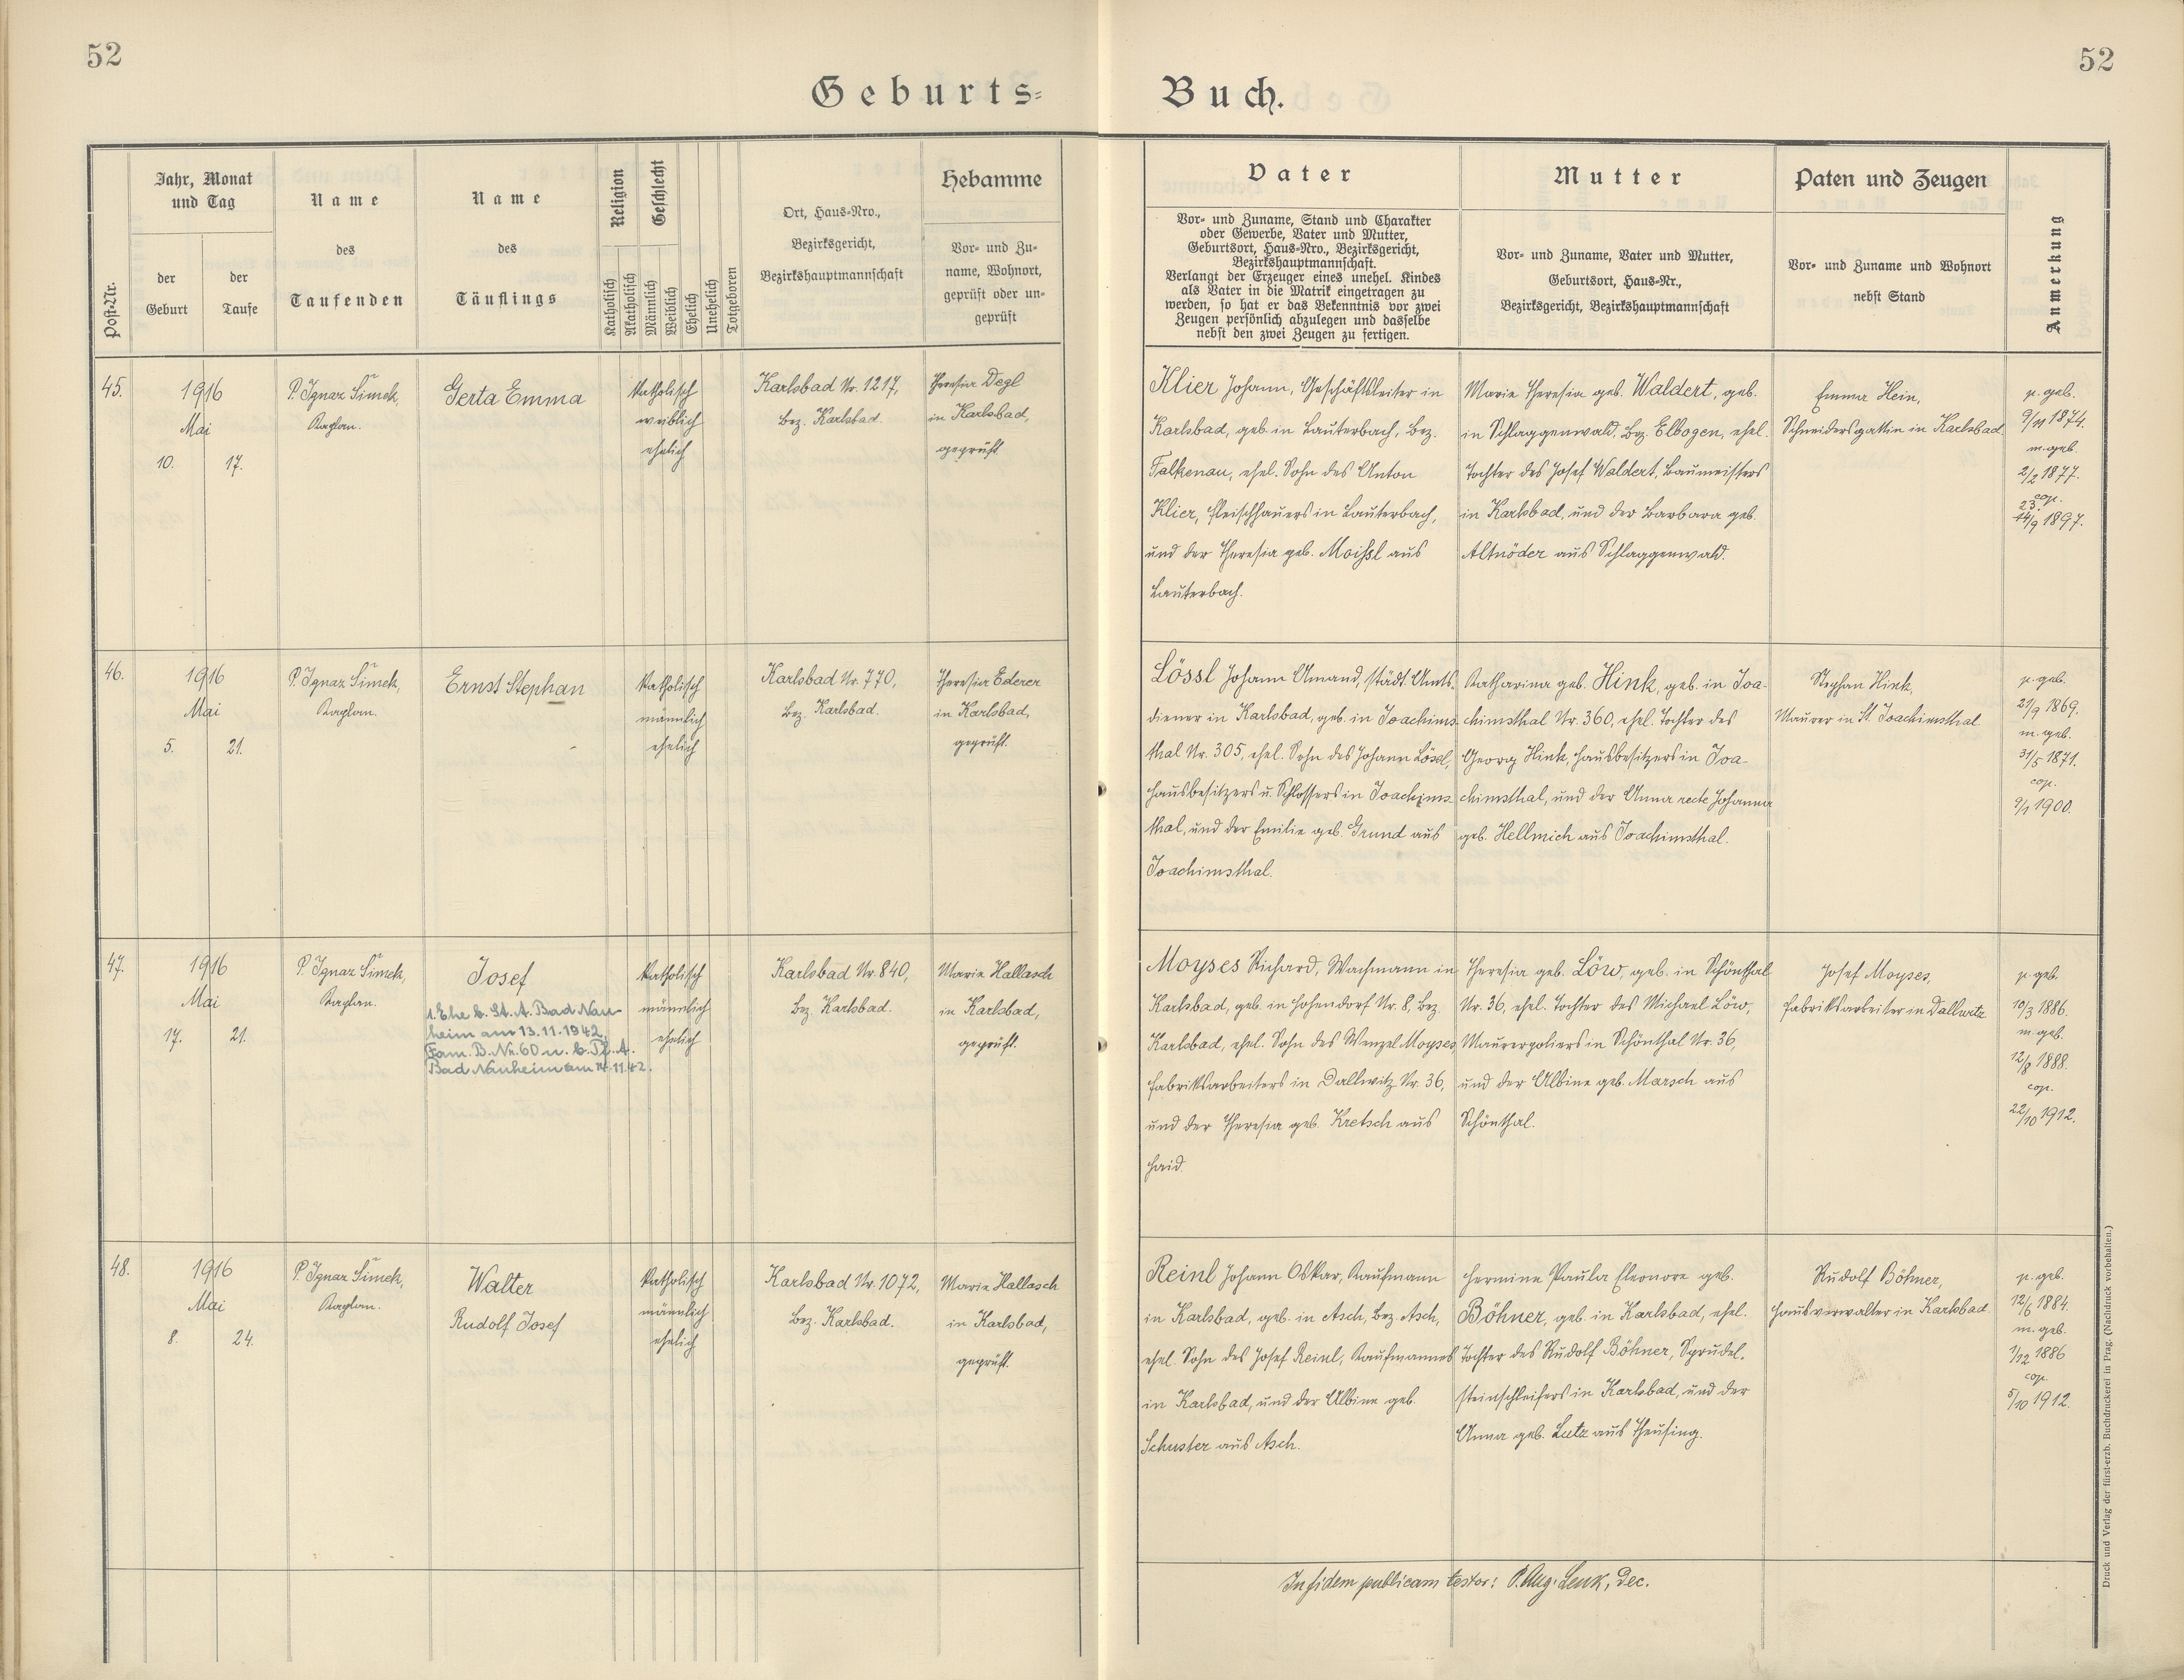 52
52
Geburts-
Buch.
Post-Nr.
Jahr, Monat
und Tag
der
Geburt
der
Taufe
Name
des
Taufenden
Name
des
Täuflings
Religion
Geschlecht
Katholisch
Akatholisch
Männlich
Weiblich
Ehelich
Unehelich
Totgeboren
Ort, Haus-Nro.,
Bezirksgericht,
Bezirkshauptmannschaft
Hebamme
Vor- und Zu-
name, Wohnort,
geprüft oder un-
geprüft
Vater
Vor- und Zuname, Stand und Charakter
oder Gewerbe, Vater und Mutter,
Geburtsort, Haus-Nro., Bezirksgericht,
Bezirkshauptmannschaft.
Verlangt der Erzeuger eines unehel. Kindes
als Vater in die Matrik eingetragen zu
werden, so hat er das Bekenntnis vor zwei
Zeugen persönlich abzulegen und dasselbe
nebst den zwei Zeugen zu fertigen.
Mutter
Vor- und Zuname, Vater und Mutter,
Geburtsort, Haus-Nr.,
Bezirksgericht, Bezirkshauptmannschaft
Paten und Zeugen
Vor- und Zuname und Wohnort
nebst Stand
Anmerkung
45.
1916
Mai
10.
17.
P. Ignaz Šimek,
Kaplan.
Gerta Emma
Katholisch
weiblich
ehelich
Karlsbad Nr. 1217,
Bez. Karlsbad.
Theresia Degl
in Karlsbad,
geprüft.
Klier Johann, Geschäftsleiter in
Karlsbad, geb. in Lauterbach, Bez.
Falkenau, ehel. Sohn des Anton
Klier, Fleischhauers in Lauterbach,
und der Theresia geb. Moissl aus
Lauterbach.
Marie Theresia geb. Waldert, geb.
in Schlaggenwald, Bez. Elbogen, ehel.
Tochter des Josef Waldert, Baumeisters
in Karlsbad, und der Barbara geb.
Altnöder aus Schlaggenwald.
Emma Hein,
Schneidersgattin in Karlsbad.
p. geb.
9/11 1874.
m. geb.
2/2 1877.
cop.
23.
14/9 1897.
46.
1916
Mai
5.
21.
P. Ignaz Šimek,
Kaplan.
Ernst Stephan
Katholisch
männlich
ehelich
Karlsbad Nr. 770,
Bez. Karlsbad.
Theresia Ederer
in Karlsbad,
geprüft.
Lössl Johann Amand, städt. Amts-
diener in Karlsbad, geb. in Joachims-
thal Nr. 305, ehel. Sohn des Johann Lössl,
Hausbesitzers u. Schlossers in Joachims-
thal, und der Emilie geb. Grund aus
Joachimsthal.
Katharina geb. Hink, geb. in Joa-
chimsthal Nr. 360, ehel. Tochter des
Georg Hink, Hausbesitzers in Joa-
chimsthal, und der Anna recte Johanna
geb. Hellmich aus Joachimsthal.
Stephan Hink,
Maurer in St. Joachimsthal.
p. geb.
21/9 1869.
m. geb.
31/5 1871.
cop.
1900.
47.
1916
Mai
17.
21.
P. Ignaz Šimek,
Kaplan.
Josef
1. Ehe b. St. A. Bad Nau-
heim am 13.11.1942,
Fam. B. Nr. 60 u. b. Pf. A.
Bad Nauheim am 14.11.42.
Katholisch
männlich
ehelich
Karlsbad Nr. 840,
Bez. Karlsbad.
Marie Hallasch
in Karlsbad,
geprüft.
Moyses Richard, Wachmann in
Karlsbad, geb. in Hohendorf Nr. 8, Bez.
Karlsbad, ehel. Sohn des Wenzel Moyses,
Fabriksarbeiters in Dallwitz Nr. 36,
und der Theresia geb. Kretsch aus
Haid.
Theresia geb. Löw, geb. in Schönthal
Nr. 36, ehel. Tochter des Michael Löw,
Maurerpoliers in Schönthal Nr. 36,
und der Albine geb. Marsch aus
Schönthal.
Josef Moyses,
Fabriksarbeiter in Dallwitz
p. geb.
10/3 1886.
m. geb.
12/8 1888.
cop.
22/10 1912.
48.
1916
Mai
8.
24.
P. Ignaz Šimek,
Kaplan.
Walter
Rudolf Josef
Katholisch
männlich
ehelich
Karlsbad Nr. 1072,
Bez. Karlsbad.
Marie Hallasch
in Karlsbad,
geprüft.
Reinl Johann Oskar, Kaufmann
in Karlsbad, geb. in Asch, Bez. Asch,
ehel. Sohn des Josef Reinl, Kaufmannes
in Karlsbad, und der Albine geb.
Schuster aus Asch.
Hermine Paula Eleonore geb.
Böhner, geb. in Karlsbad, ehel.
Tochter des Rudolf Böhner, Sprudel-
steinschleifers in Karlsbad, und der
Anna geb. Lutz aus Theusing.
Rudolf Böhner,
Hausverwalter in Karlsbad.
p. geb.
12/6 1884.
m. geb.
1/12 1886
cop.
5/10 1912.
In fidem publicam testor: P. Aug. Lenk, Dec.
Druck und Verlag der fürst-erzb. Buchdruckerei in Prag. (Nachdruck vorbehalten.)